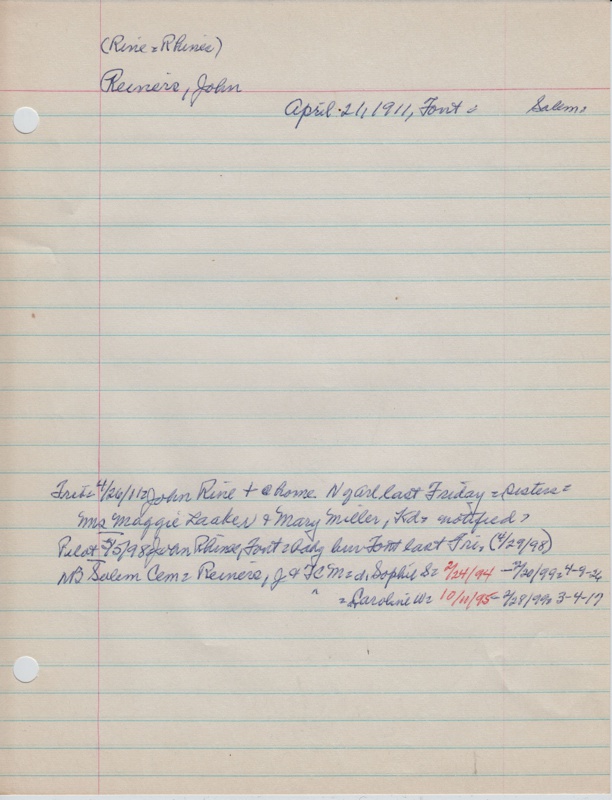 (Rine = Rhines)
Reiners, John
April 21, 1911, Font = Salem=
Trib= 4/26/11= John Rine + @ home N of Arl last Friday = Sisters =
Mrs Maggie Laaker & Mary Miller, Kd= notified =
Pilot 5/5/98 John Rhines, Font= baby bur Font last Fri. (4/29/98)
NB Salem Cem= Reiners, J & M = d, Sophie S= 2/24/94 - 2/20/99= 4-9-26
= Caroline W= 10/11/95 - 2/28/99= 3-4-17